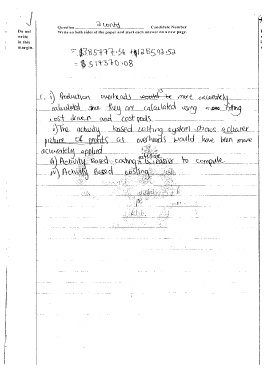 Question 2 conts Candidate Number
Do not write in this margin.
Write on both sides of the paper and start each answer on a new page.
= $385777.56 + $128592.52
= $514370.08
c. i) Production overheads would be more accurately
calculated since they are calculated using a fitting
cost driver and cost pools
ii) The activity based costing system shows a clearer
picture of profits as overheads would have been more
accurately applied
iii) Activity Based costing is easier to compute
iv) Activity Based costing